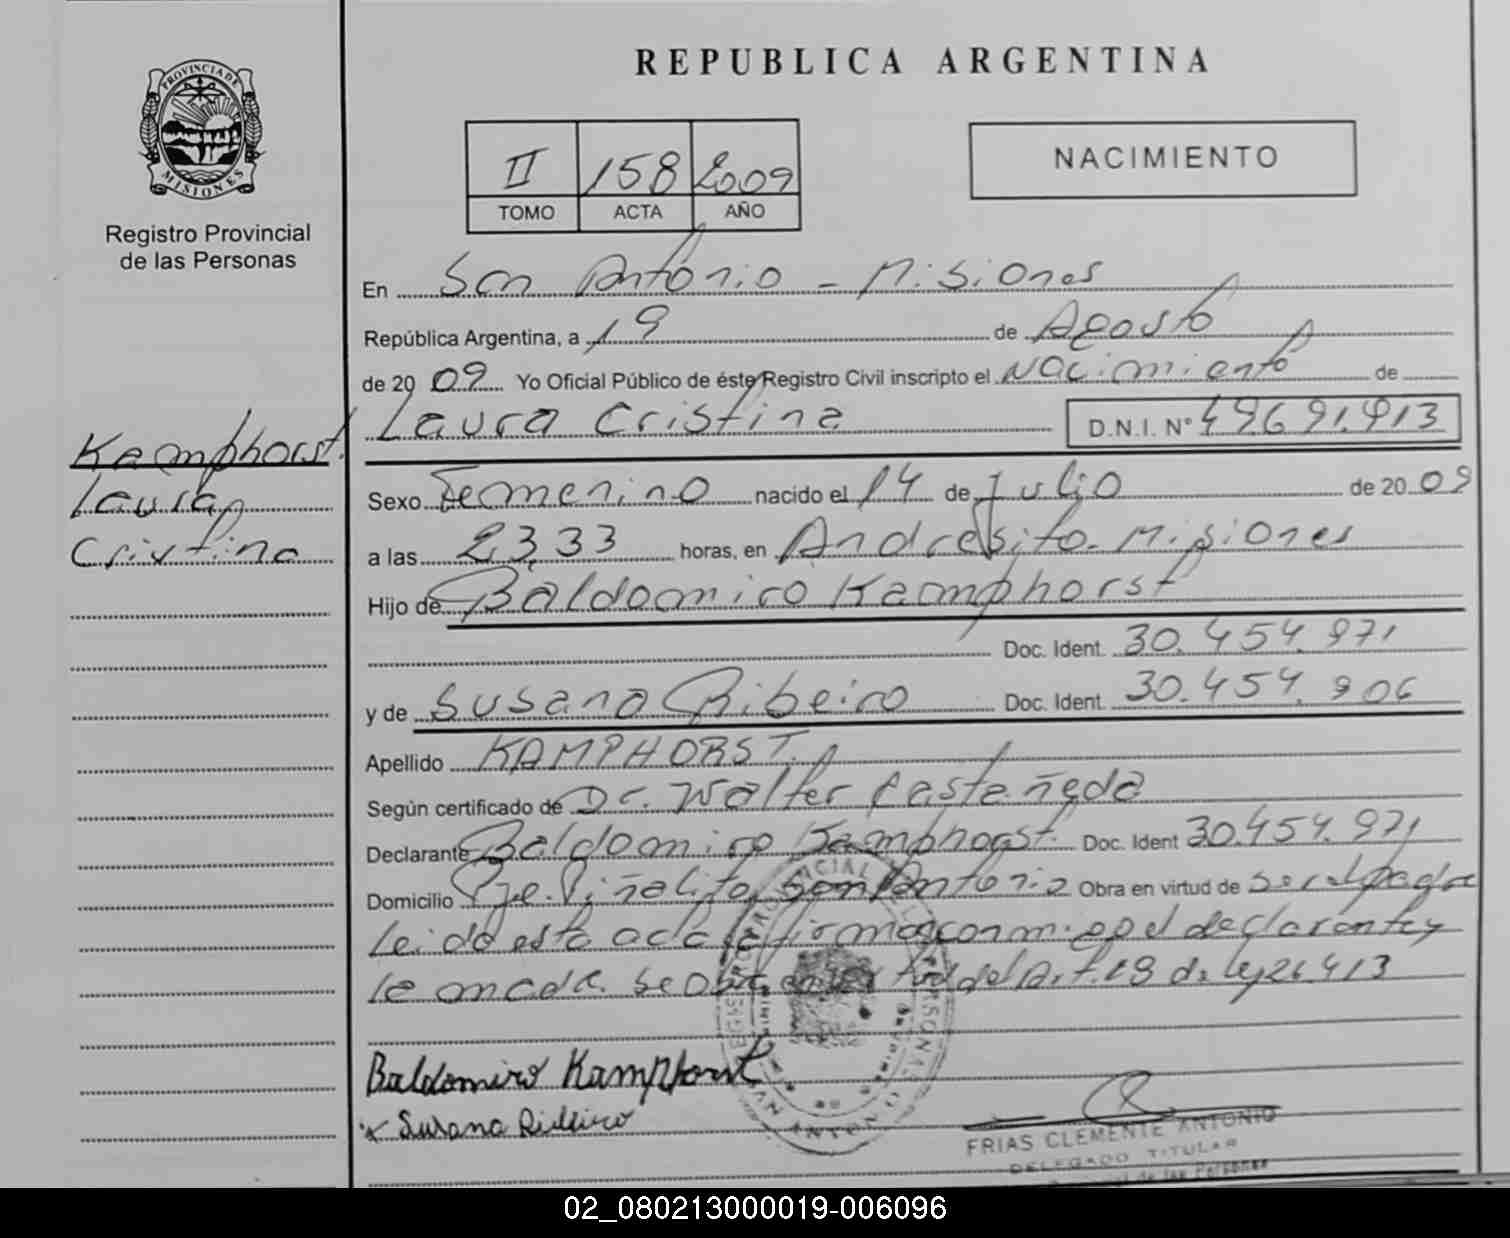 REPUBLICA ARGENTINA
PROVINCIA DE MISIONES
Registro Provincial
de las Personas
II 158 2009
TOMO ACTA AÑO
NACIMIENTO
En San Antonio - Misiones
República Argentina, a 19 de Agosto
de 2009 Yo Oficial Público de éste Registro Civil inscripto el Nacimiento de
Laura Cristina D.N.I. N° 49.691.913
Kamphorst.
Laura
Cristina
Sexo Femenino nacido el 14 de Julio de 2009
a las 23,33 horas, en Andresito - Misiones
Hijo de Baldomiro Kamphorst
Doc. Ident. 30.454.971
y de Susana Ribeiro Doc. Ident. 30.454.906
Apellido KAMPHORST.
Según certificado de Dr. Walter Castañeda
Declarante Baldomiro Kamphorst. Doc. Ident 30.454.971
Domicilio Pje. Piñalito San Antonio Obra en virtud de ser el padre
Leido esta acta firma conmigo el declarante y
la madre. Se en del Art. 18 de ley 26.413
Baldomiro Kamphorst
x Susana Ribeiro
FRIAS CLEMENTE ANTONIO
DELEGADO TITULAR
de las Personas
SAN ANTONIO
02_080213000019-006096